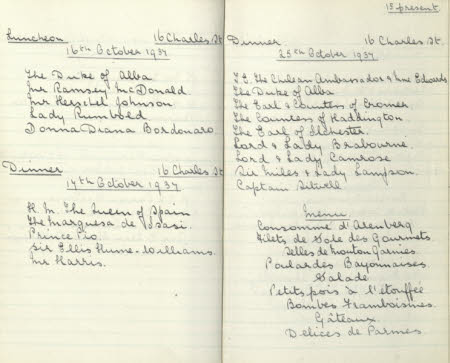 Luncheon 16 Charles. St
16th October 1937
The Duke of Alba
Mr Ramsey McDonald
Mr Herschel Johnson
Lady Rumbold
Donna Diana Bordonaro
Dinner 16 Charles. St
17th October 1937
H.M. The Queen of Spain
The Marquesa de
Prince Pio.
Sir Ellis Hume-Williams.
Mr Harris.
15 present
Dinner 16 Charles. St.
25th October 1937
T.E. The Chilean Ambassador & Mme Edwards
The Duke of Alba
The Earl & Countess of Cromer.
The Countess of Haddington.
The Earl of Ilchester.
Lord & Lady Brabourne.
Lord & Lady Camrose
Sir Miles & Lady Lampson.
Captain Sitwell
Menu
Consommé d'Arenberg
Filets de Sole des Gourmets.
Selles de mouton Garnies
Poulardes Bayonnaises
Salade
Petits pois à l'etouffée
Bombes Framboisines.
Gâteaux.
Delices de Parmes